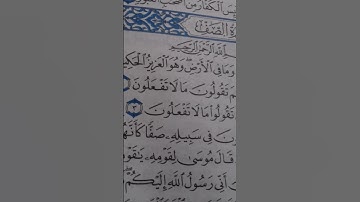 ٱلْكُفَّارُ مِنْ أَصْحَٰبِ
ٱلصَّفِّ
ٱللَّهِ ٱلرَّحْمَٰنِ ٱلرَّحِيمِ
وَمَا فِي ٱلْأَرْضِ وَهُوَ ٱلْعَزِيزُ ٱلْحَكِيمُ
تَقُولُونَ مَا لَا تَفْعَلُونَ ٢
تَقُولُوا۟ مَا لَا تَفْعَلُونَ ٣
فِي سَبِيلِهِۦ صَفًّا كَأَنَّهُم
قَالَ مُوسَىٰ لِقَوْمِهِۦ يَٰقَوْمِ
أَنِّي رَسُولُ ٱللَّهِ إِلَيْكُمْ